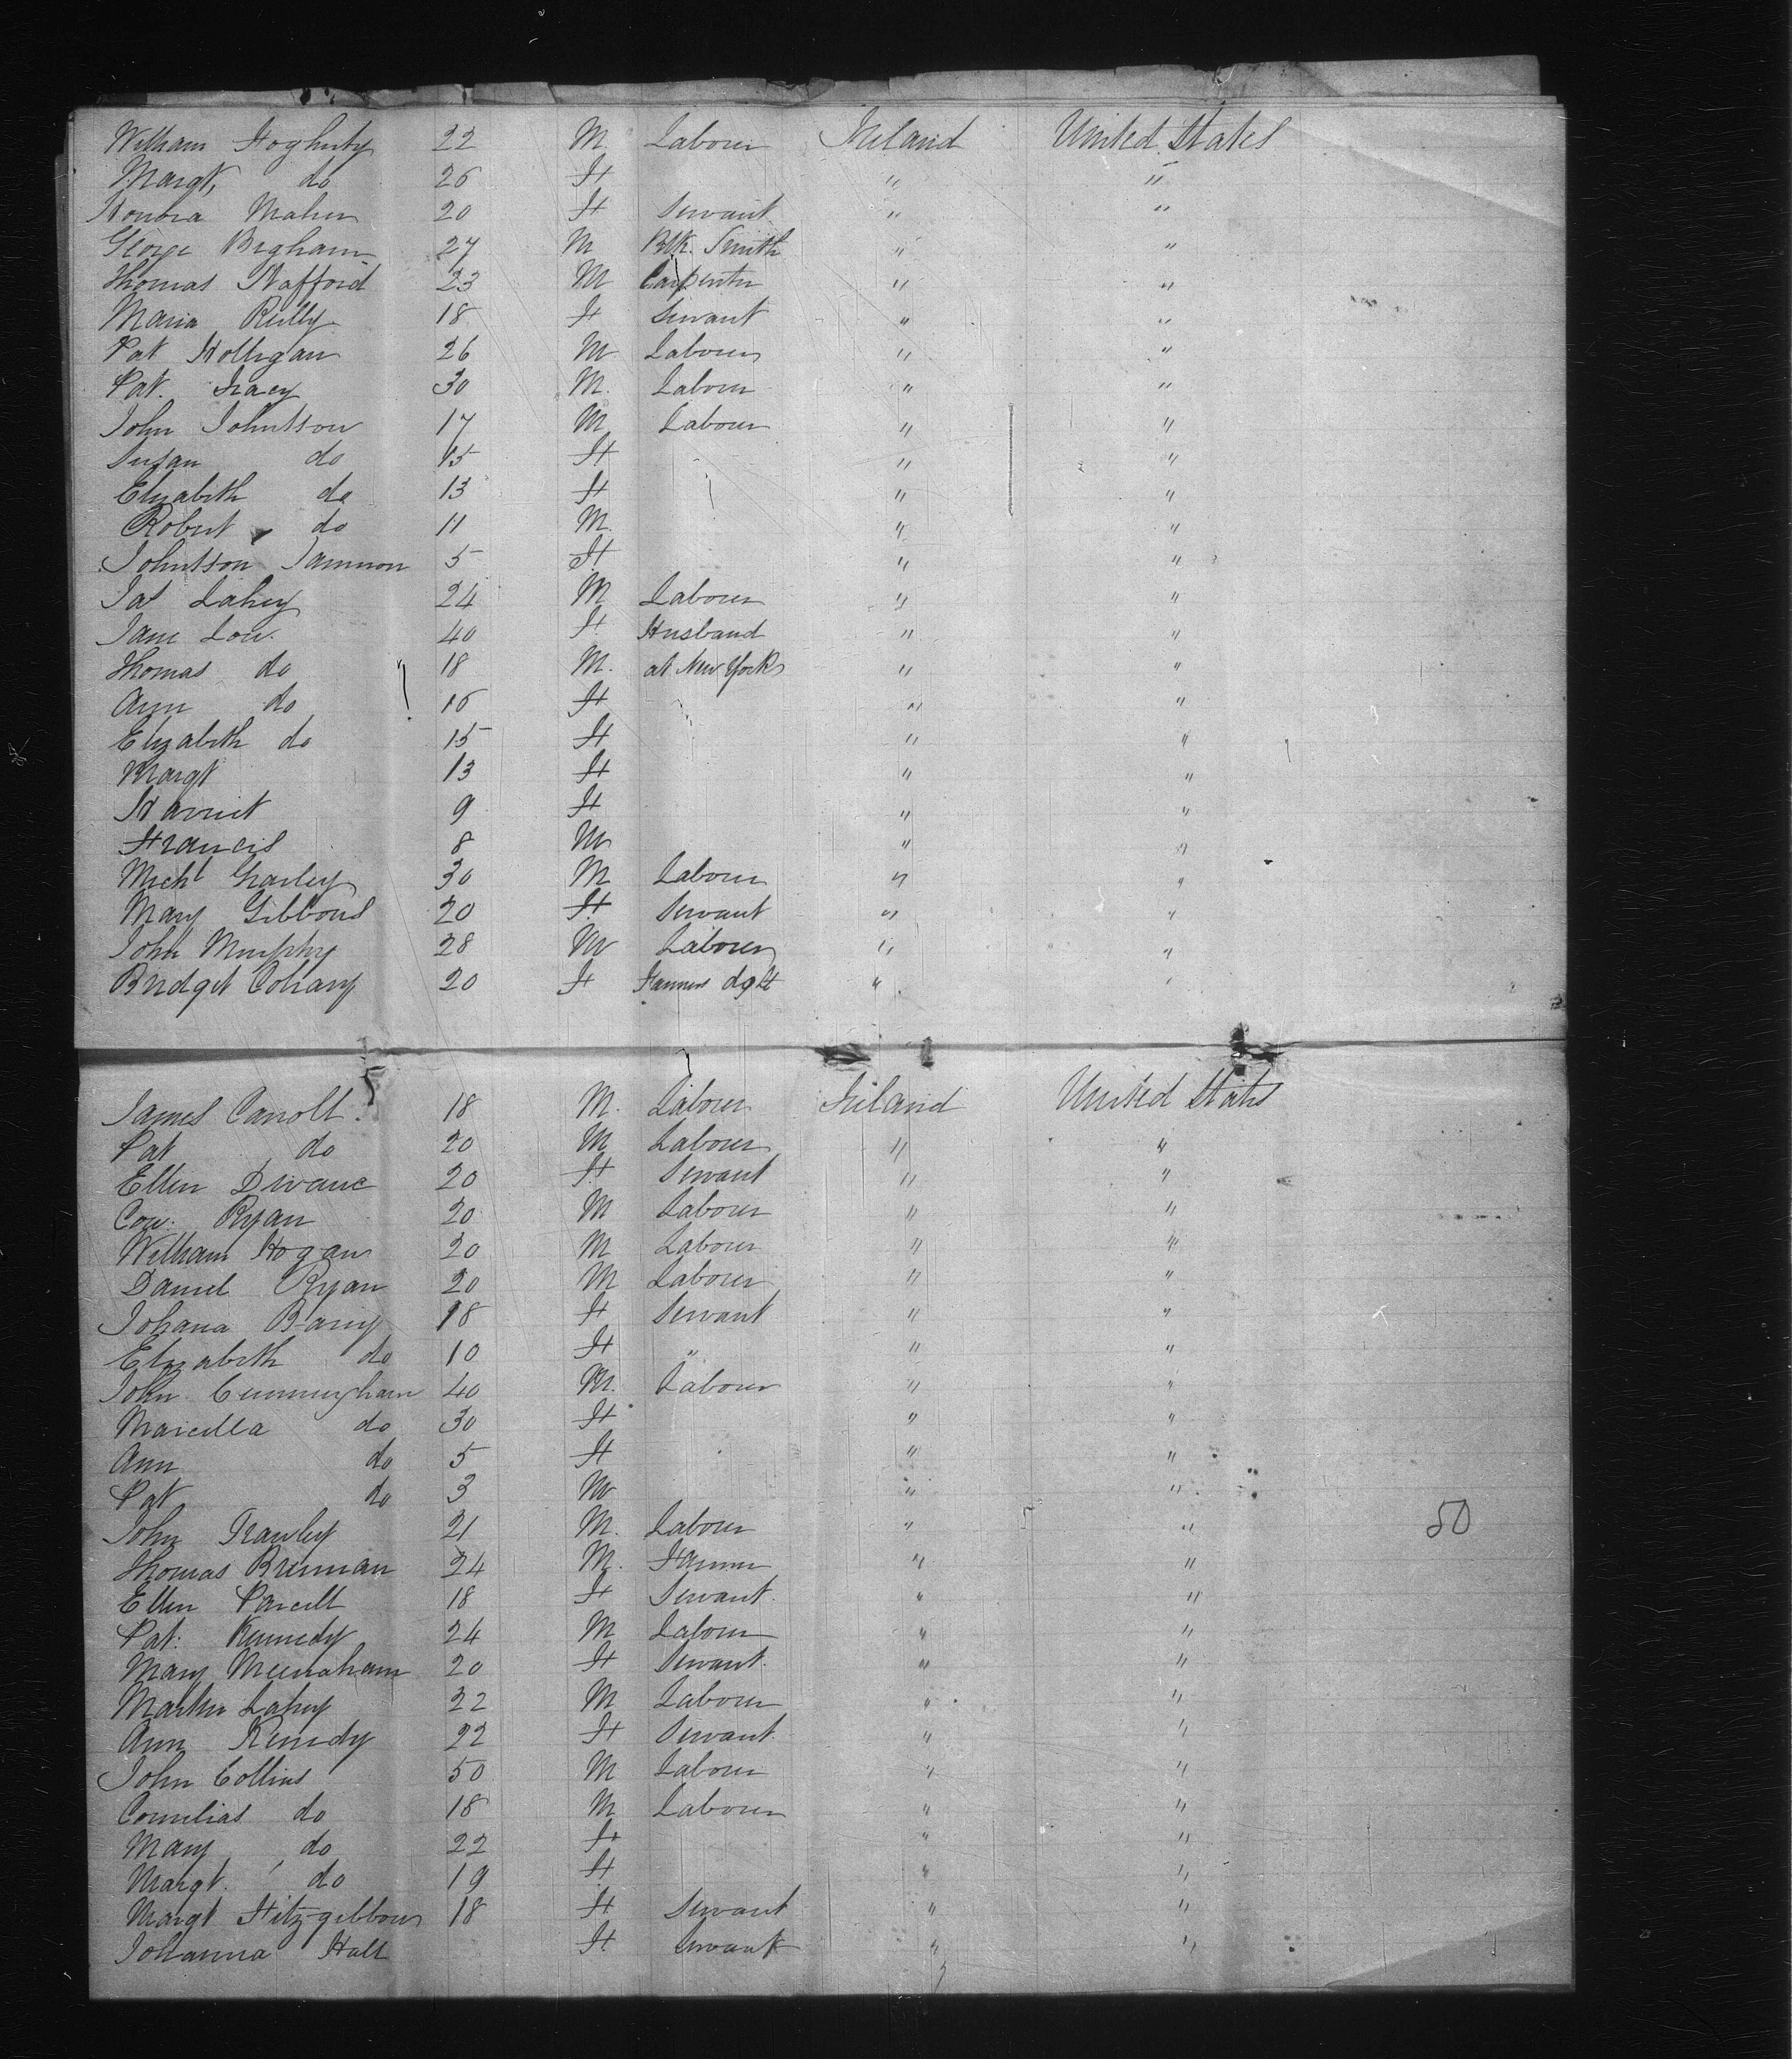 William Fogherty 22 M. Labourer Ireland United States
Margt, do 26 F " "
Honora Maher 20 F Servant " "
George Brigham 27 M Blk. Smith " "
Thomas Stafford 23 M Carpenter " "
Maria Reilly 18 F Servant " "
Pat Holligan 26 M Labourer " "
Pat. Tracy 30 M. Labourer " "
John Johntson 17 M Labourer " "
Susan do 15 F " "
Elizabeth do 13 F " "
Robert do 11 M. " "
Johntson 5 F " "
Lahey 24 M Labourer " "
Jane Low. 40 F Husband " "
Thomas do 18 M. at New York " "
Ann do 16 F " "
Elizabeth do 15 F " "
Margt 13 F " "
Harriet 9 F " "
Francis 8 M " "
Michl 30 M Labourer " "
Mary Gibbons 20 F Servant " "
John Murphy 28 M Labourer " "
Bridget 20 F Farmers dght " "
James Carroll. 18 M. Labourer Ireland United States
Pat do 20 M Labourer " "
Ellen Divane 20 F Servant " "
Con: Ryan 20 M Labourer " "
William Hogan 20 M Labourer " "
Daniel Ryan 20 M Labourer " "
Johana Barry 18 F Servant " "
Elizabeth do 10 F " " "
John Cunningham 40 M. Labourer " "
Marcella do 30 F " "
Ann do 5 F " "
Pat do 3 M " "
John 21 M. Labourer " " 50
Thomas Brennan 24 M. Farmer " "
Ellen Parcell 18 F Servant. " "
Pat: Kennedy 24 M Labourer " "
Mary 20 F Servant. " "
Martin Lahey 22 M Labourer " "
Ann Kenedy 22 F Servant. " "
John Collins 50 M Labourer " "
Cornelias do 18 M Labourer " "
Mary do 22 F " "
Margt. do 19 F " "
Margt Fitz-gibbon 18 F Servant " "
Johanna Hall F Servant " "